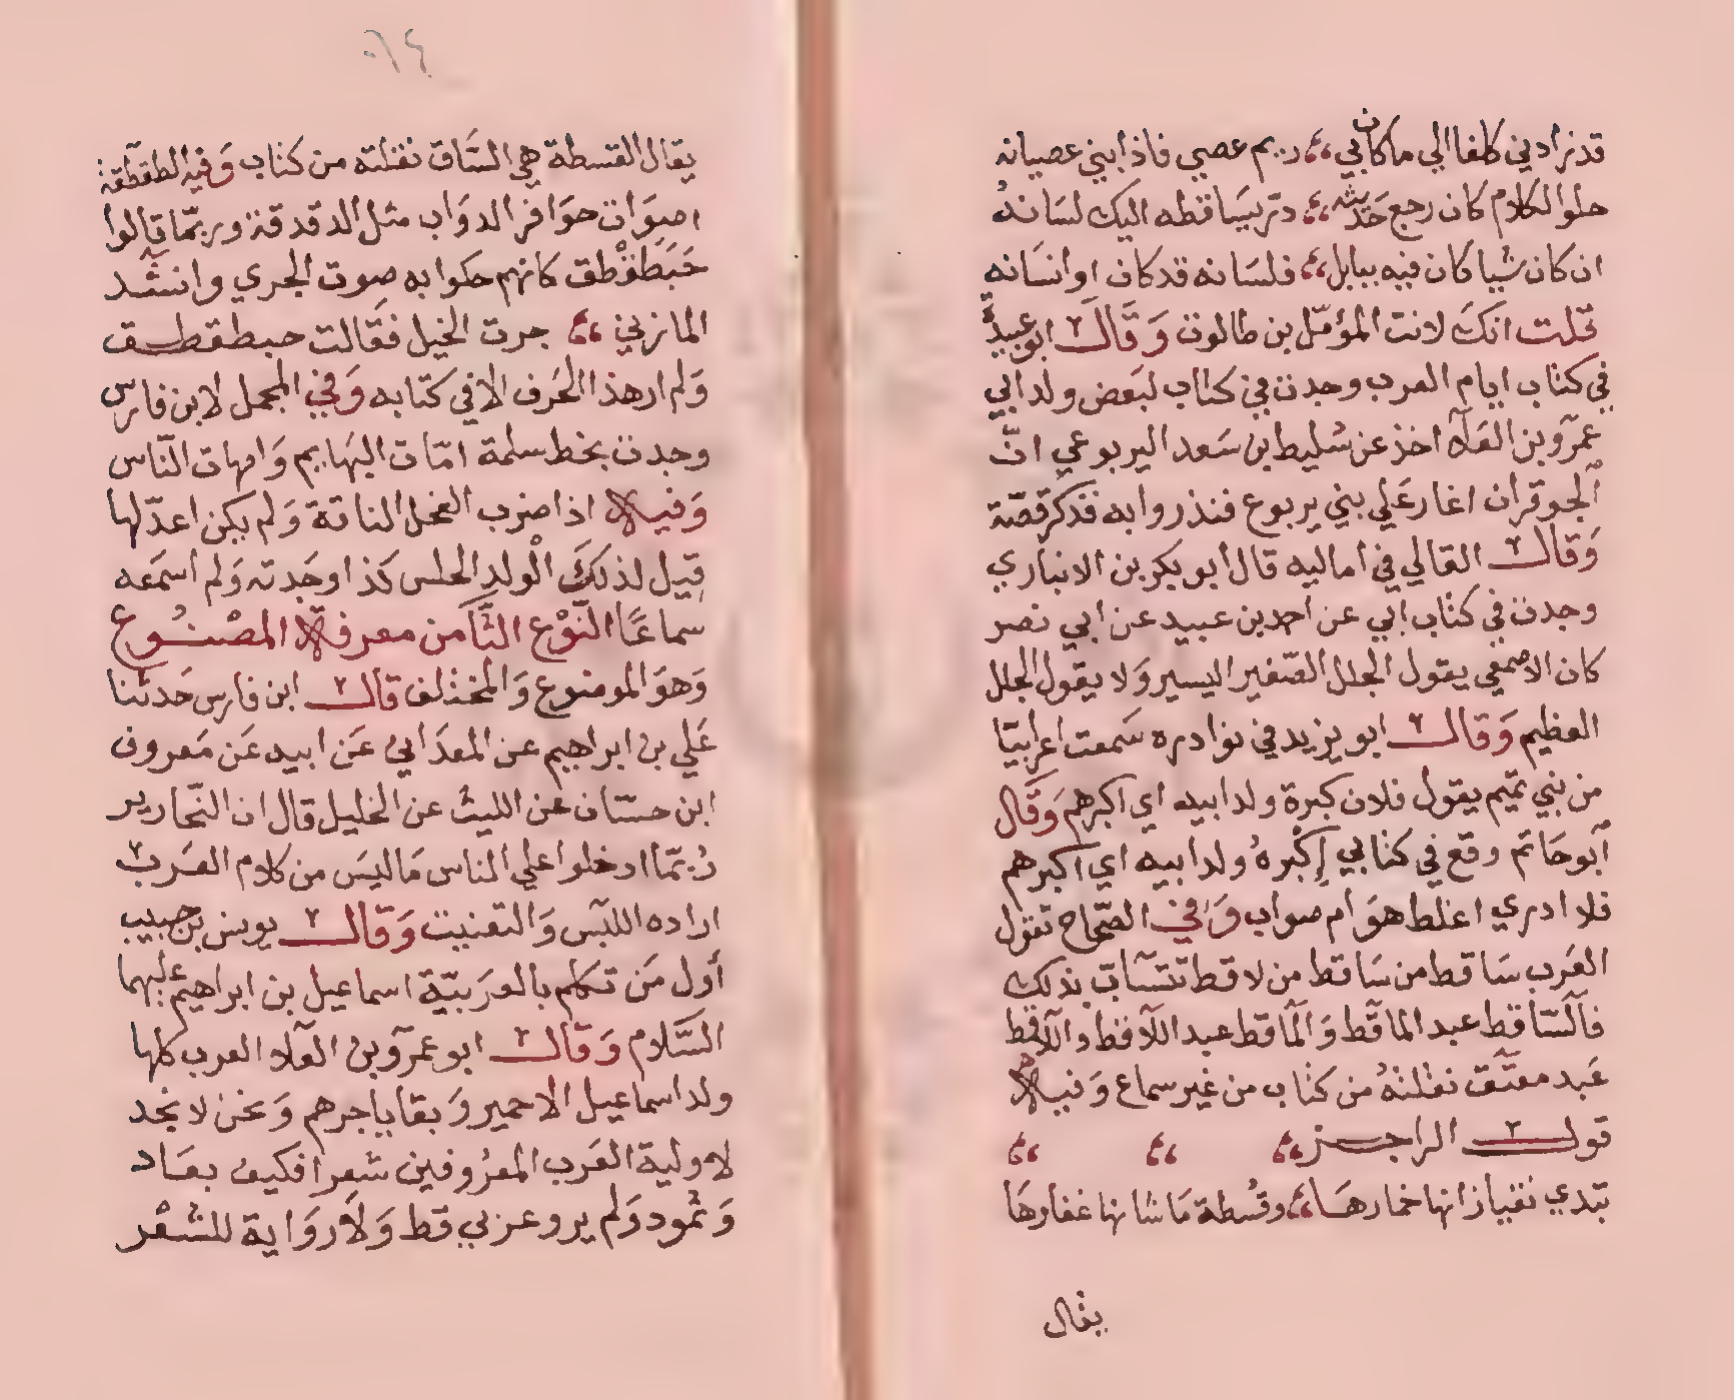 قد زادني كلفا الي ما كان بي ،، ريم عصي فاذا بني عصيانه
حلو الكلام كان رجع حديثه ،، در يساقطه اليك لسانه
ان كان شيا كان فيه ببابل ،، فلسانه قد كان او انسانه
قلت انك لانت المؤمّل بن طالوت وَقَال ابو عبيدة
في كتاب ايام العرب وجدت في كتاب لبَعض ولد ابي
عمرو بن العلآ اخذ عن سُليط بن سَعد اليربوعي انّ
الجوقران اغار عَلي بني يربوع فنذروا به فذكر قصّة
وَقال القالي في اماليه قال ابو بكر بن الانباري
وجدت في كتاب ابي عن احمد بن عبيد عن ابي نصر
كان الاصمعي يقول الجلل الصّغير اليسير وَلا يقول الجلل
العظيم وَقال ابو يزيد في نوادره سَمعت اعرابيّا
من بني تميم يقول فلان كبرة ولد ابيه اي اكبرهم وَقال
أبو حَاتم وقع في كتابي إكْبرهُ ولد ابيه اي اكبرهم
فلا ادري اغلط هوَ ام صواب وَفي الصّحاح تقول
العَرب سَاقط من سَاقط من لاقط تتسَابّ بذلك
فالسّاقط عبد الماقط وَالماقط عبد اللاقط واللاقط
عَبد معتَق نقلتهُ من كتاب من غير سماع وَفيه
قول الراجز ،، ،، ،،
تبدي نقيا زانها خمارهَا ،، وقُسطة مَا شانها غفارهَا
يقال
٠١٤
يقال القسطة هي السَّاق نقلته من كتاب وَفيه الطقطقة
اصوَات حوَافر الدوَاب مثل الدقدقة وربمّا قالوا
حَبَطِقْطق كانهم حكوا به صوت الجري وانشَد
المازني ،، جرت الخيل فقالت حبطقطق
وَلم ار هذا الحَرف الا في كتابه وَفي المجمل لابن فارس
وجدت بخط سلمة امّات البهَايم وَامهات النّاس
وَفيه اذا ضرب الفحل الناقة وَلم يكن اعدّ لها
قيل لذلكَ الْولد الحلس كذا وجَدته وَلم اسمَعه
سماعًا النّوْع الثّامن معرفة المصْنُوع
وَهوَ الموضوع وَالمختلف قال ابن فارس حَدثنا
عَلي بن ابراهيم عن المعدَاني عَن ابيه عَن مَعروف
ابن حسّان عن الليث عن الخليل قال ان النّحارير
رُبّما ادخلوا علي الناس مَا ليسَ من كلام العَرب
اراده اللبَس وَالتعنيت وَقال يونس بن حبيب
أول مَن تكلم بالعرَبيّة اسماعيل بن ابراهيم عليهما
السّلام وَقال ابو عمرو بن العلاء العرب كلها
ولد اسماعيل الا حمير وَبقايا جرهم وَنحن لا نجد
لاولية العَرب المعرُوفين شعرا فكيف بعَاد
وَثمود وَلم يرو عربي قط وَلا روَاية للشعْر